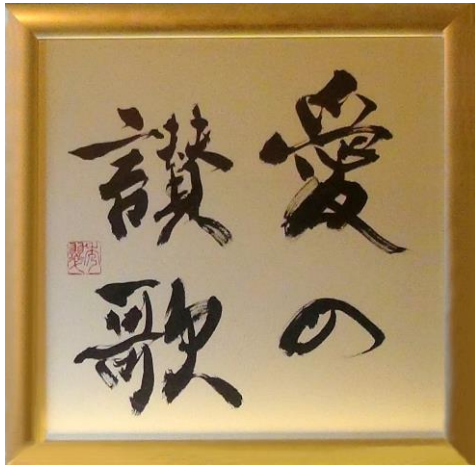 愛の
讃歌